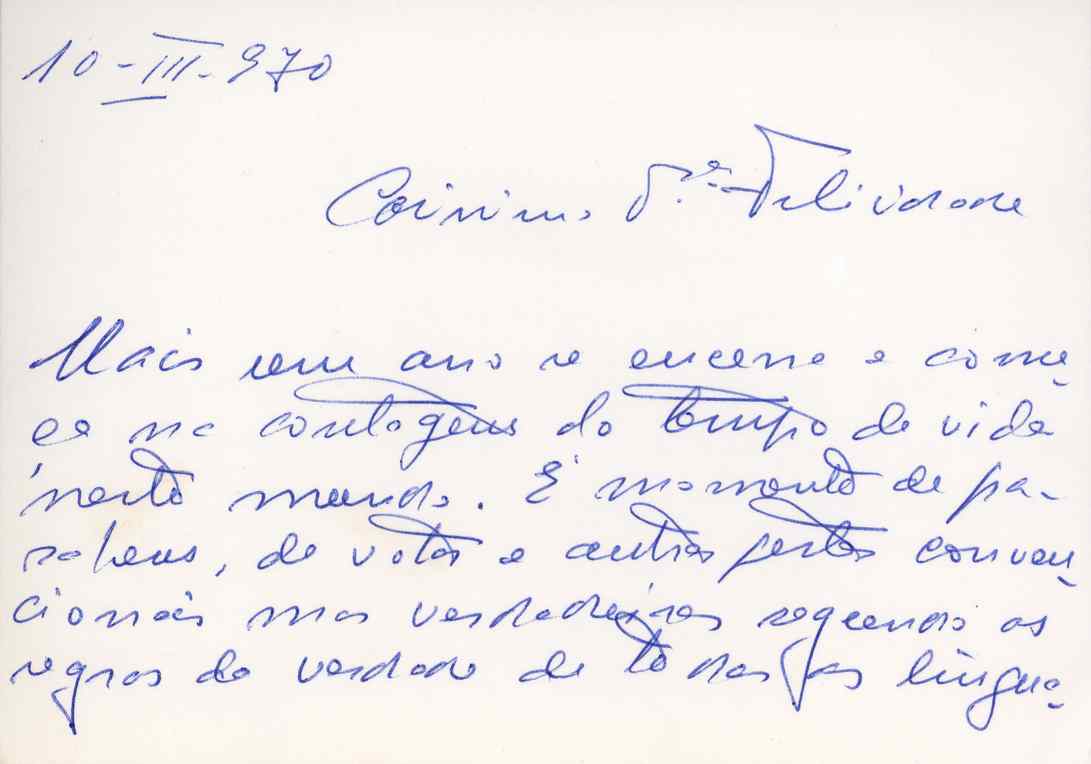 10-III-970
Caríssima D.ª Felicidade
Mais um ano se encerra e come-
ça na contagem do tempo de vida
neste mundo. É momento de pa-
rabens, de votos e outros gestos conven-
cionais mas verdadeiros segundo as
regras da verdade de todas as lingua-